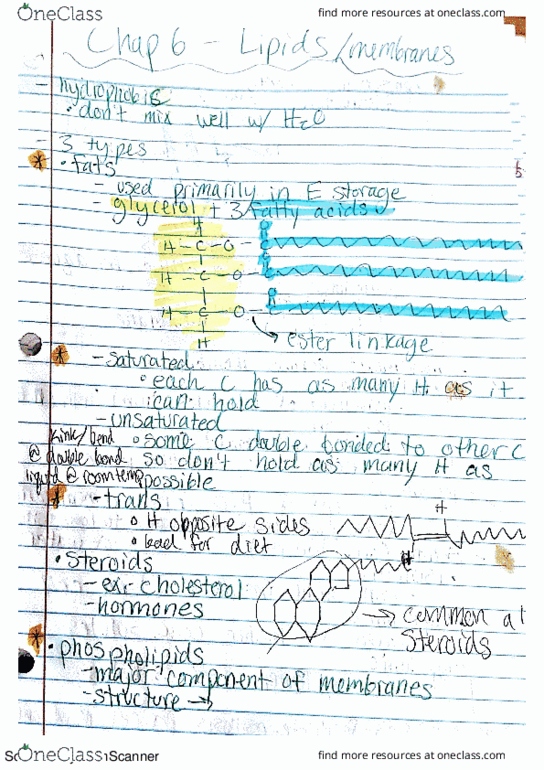 OneClass
find more resources at oneclass.com
Chap 6 - Lipids/membranes
- hydrophobic
• don't mix well w/ H2O
- 3 types
* • fats
- used primarily in E storage
- glycerol + 3 fatty acids
H
H-C-O-
H-C-O
H-C-O
H
→ ester linkage
* - saturated
• each C has as many H as it
can hold
- unsaturated
kink/bend
@ double bond
liquid @ room temp
• some C double bonded to other C
so don't hold as many H as
possible
* - trans
• H opposite sides
H
• bad for diet
H
• Steroids
- ex. cholesterol
- hormones
→ common
Steroids
* • phospholipids
- major component of membranes
- structure →
OneClass
Scanner
find more resources at oneclass.com